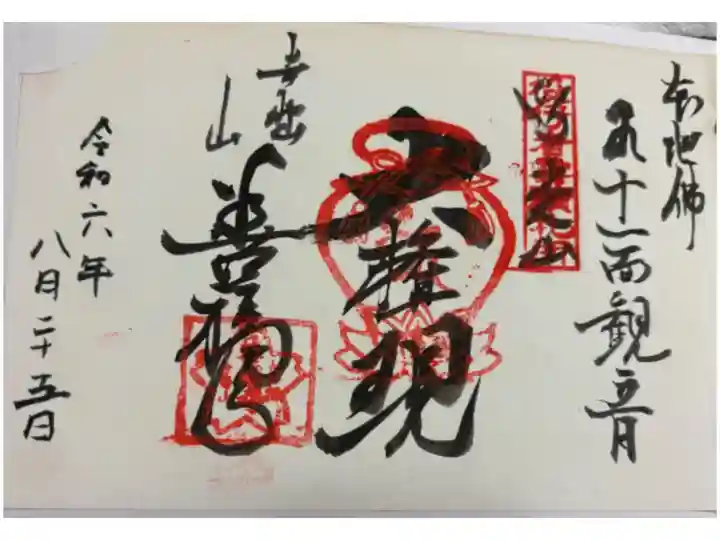 本地佛
十一面観音
大権現
吉野山
善福寺
令和六年
八月二十五日